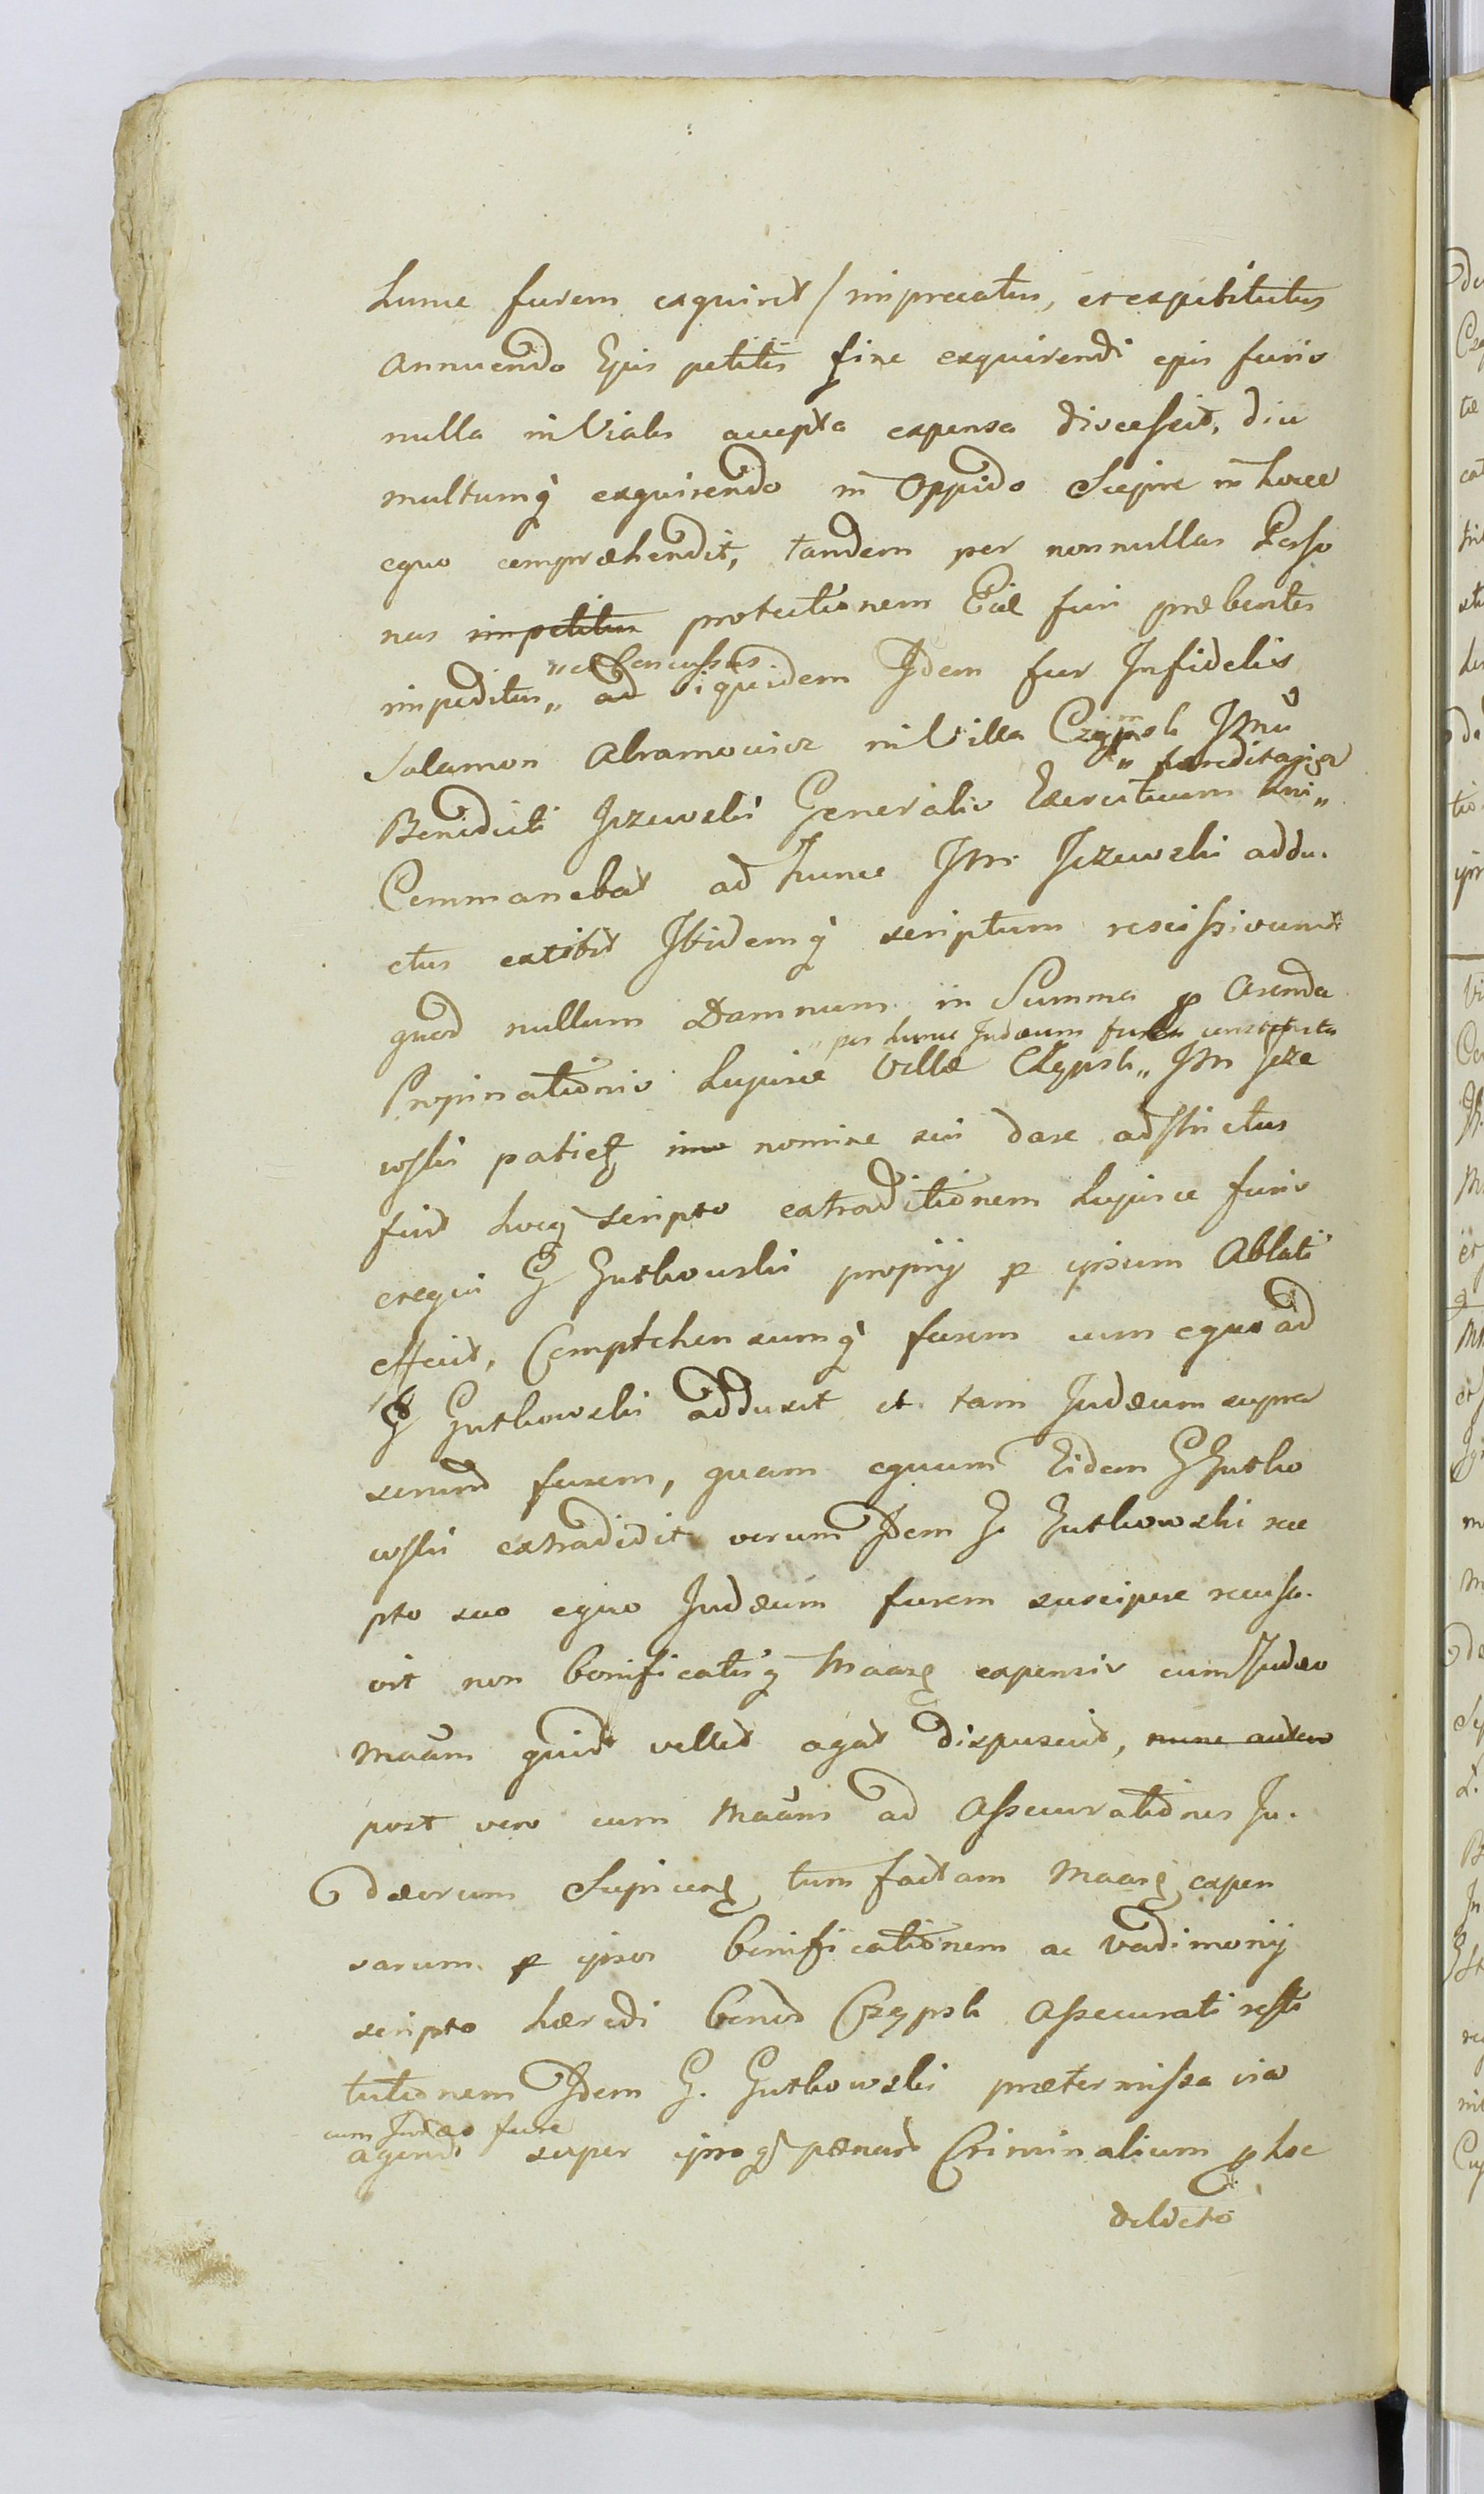 hunc furem exquiret / imprecatus, et expetitutus
annuendo Ejus petitis fine exquirendi ejus furis
nulla in Viales accepta expensa discessit, diu
multumq exquirendo in Oppido Sierpie in hocce
equo compræhendit, tandem per nonnullas Perso
nas impetitus protectionem Eid furi præbentes
impeditus „ ad iquidem Idem fur Infidelis
„ et Concussus
Salamon Abramowicz in Villa Czypsk Jmu
„ hæreditaria
Benedicti Jezewski Generalis Exercituum
Commanebat ad hunc Jm Jezewski addu.
ctus extitit Ibidemq scriptum rescissivum
quod nullum Damnum in Summa p Arenda
„ per hunc Judæum furem
Propinationis hujusce Villæ Czypsk „ Jm Jeze
wski patietq imo nomine sui dare adstrictus
fuit hocq scripto extraditionem hujusce furis
eregui G Gutkowski proprij p ipsum Ablati
effecit, Comprehensumq furem cum equo ad
G Gutkowski adduxit et tam Judæum supra
furem, quam equum Eidem G Gutko
wski extradidit verum Idem G. Gutkowski rece
pto suo equo Judæum furem suscipere recusa.
vit non bonificatisq Maarq expensis cum Judæo
Maûm quid vellet agat disposuit, nunc autem
post vero cum Maûm ad Assecurationes Ju.
dæorum Sierpiensq tum factam Maarq expen
sarum p ipsos bonificationem ac vadimonij
scripto hæredi bonor Czypsk Assecurati resti
tutionem Idem G. Gutkowski prætermissa via
cum Judæo fure
agendi super ipsoq pænas Criminalium p hoc
delicto